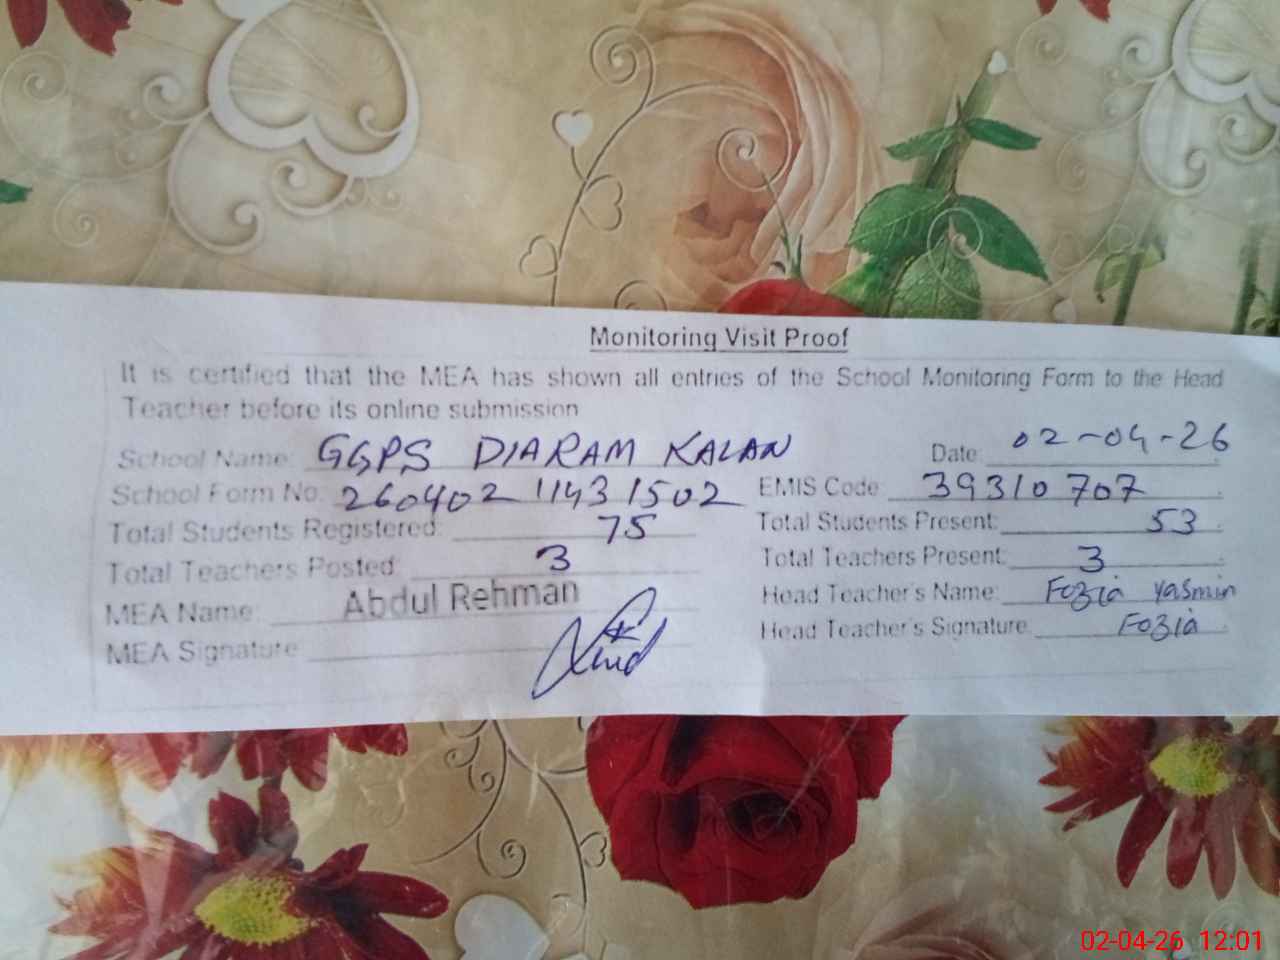 Monitoring Visit Proof
It is certified that the MEA has shown all entries of the School Monitoring Form to the Head
Teacher before its online submission
School Name: GGPS DIARAM KALAN Date: 02-04-26
School Form No: 260402 11431502 EMIS Code 39310707
Total Students Registered: 75 Total Students Present: 53
Total Teachers Posted: 3 Total Teachers Present: 3
MEA Name: Abdul Rehman Head Teacher's Name: Fozia Yasmin
MEA Signature Head Teacher's Signature Fozia
02-04-26 12:01